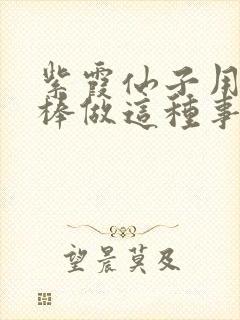 紫霞仙子用
棒做這種事
望晨莫及